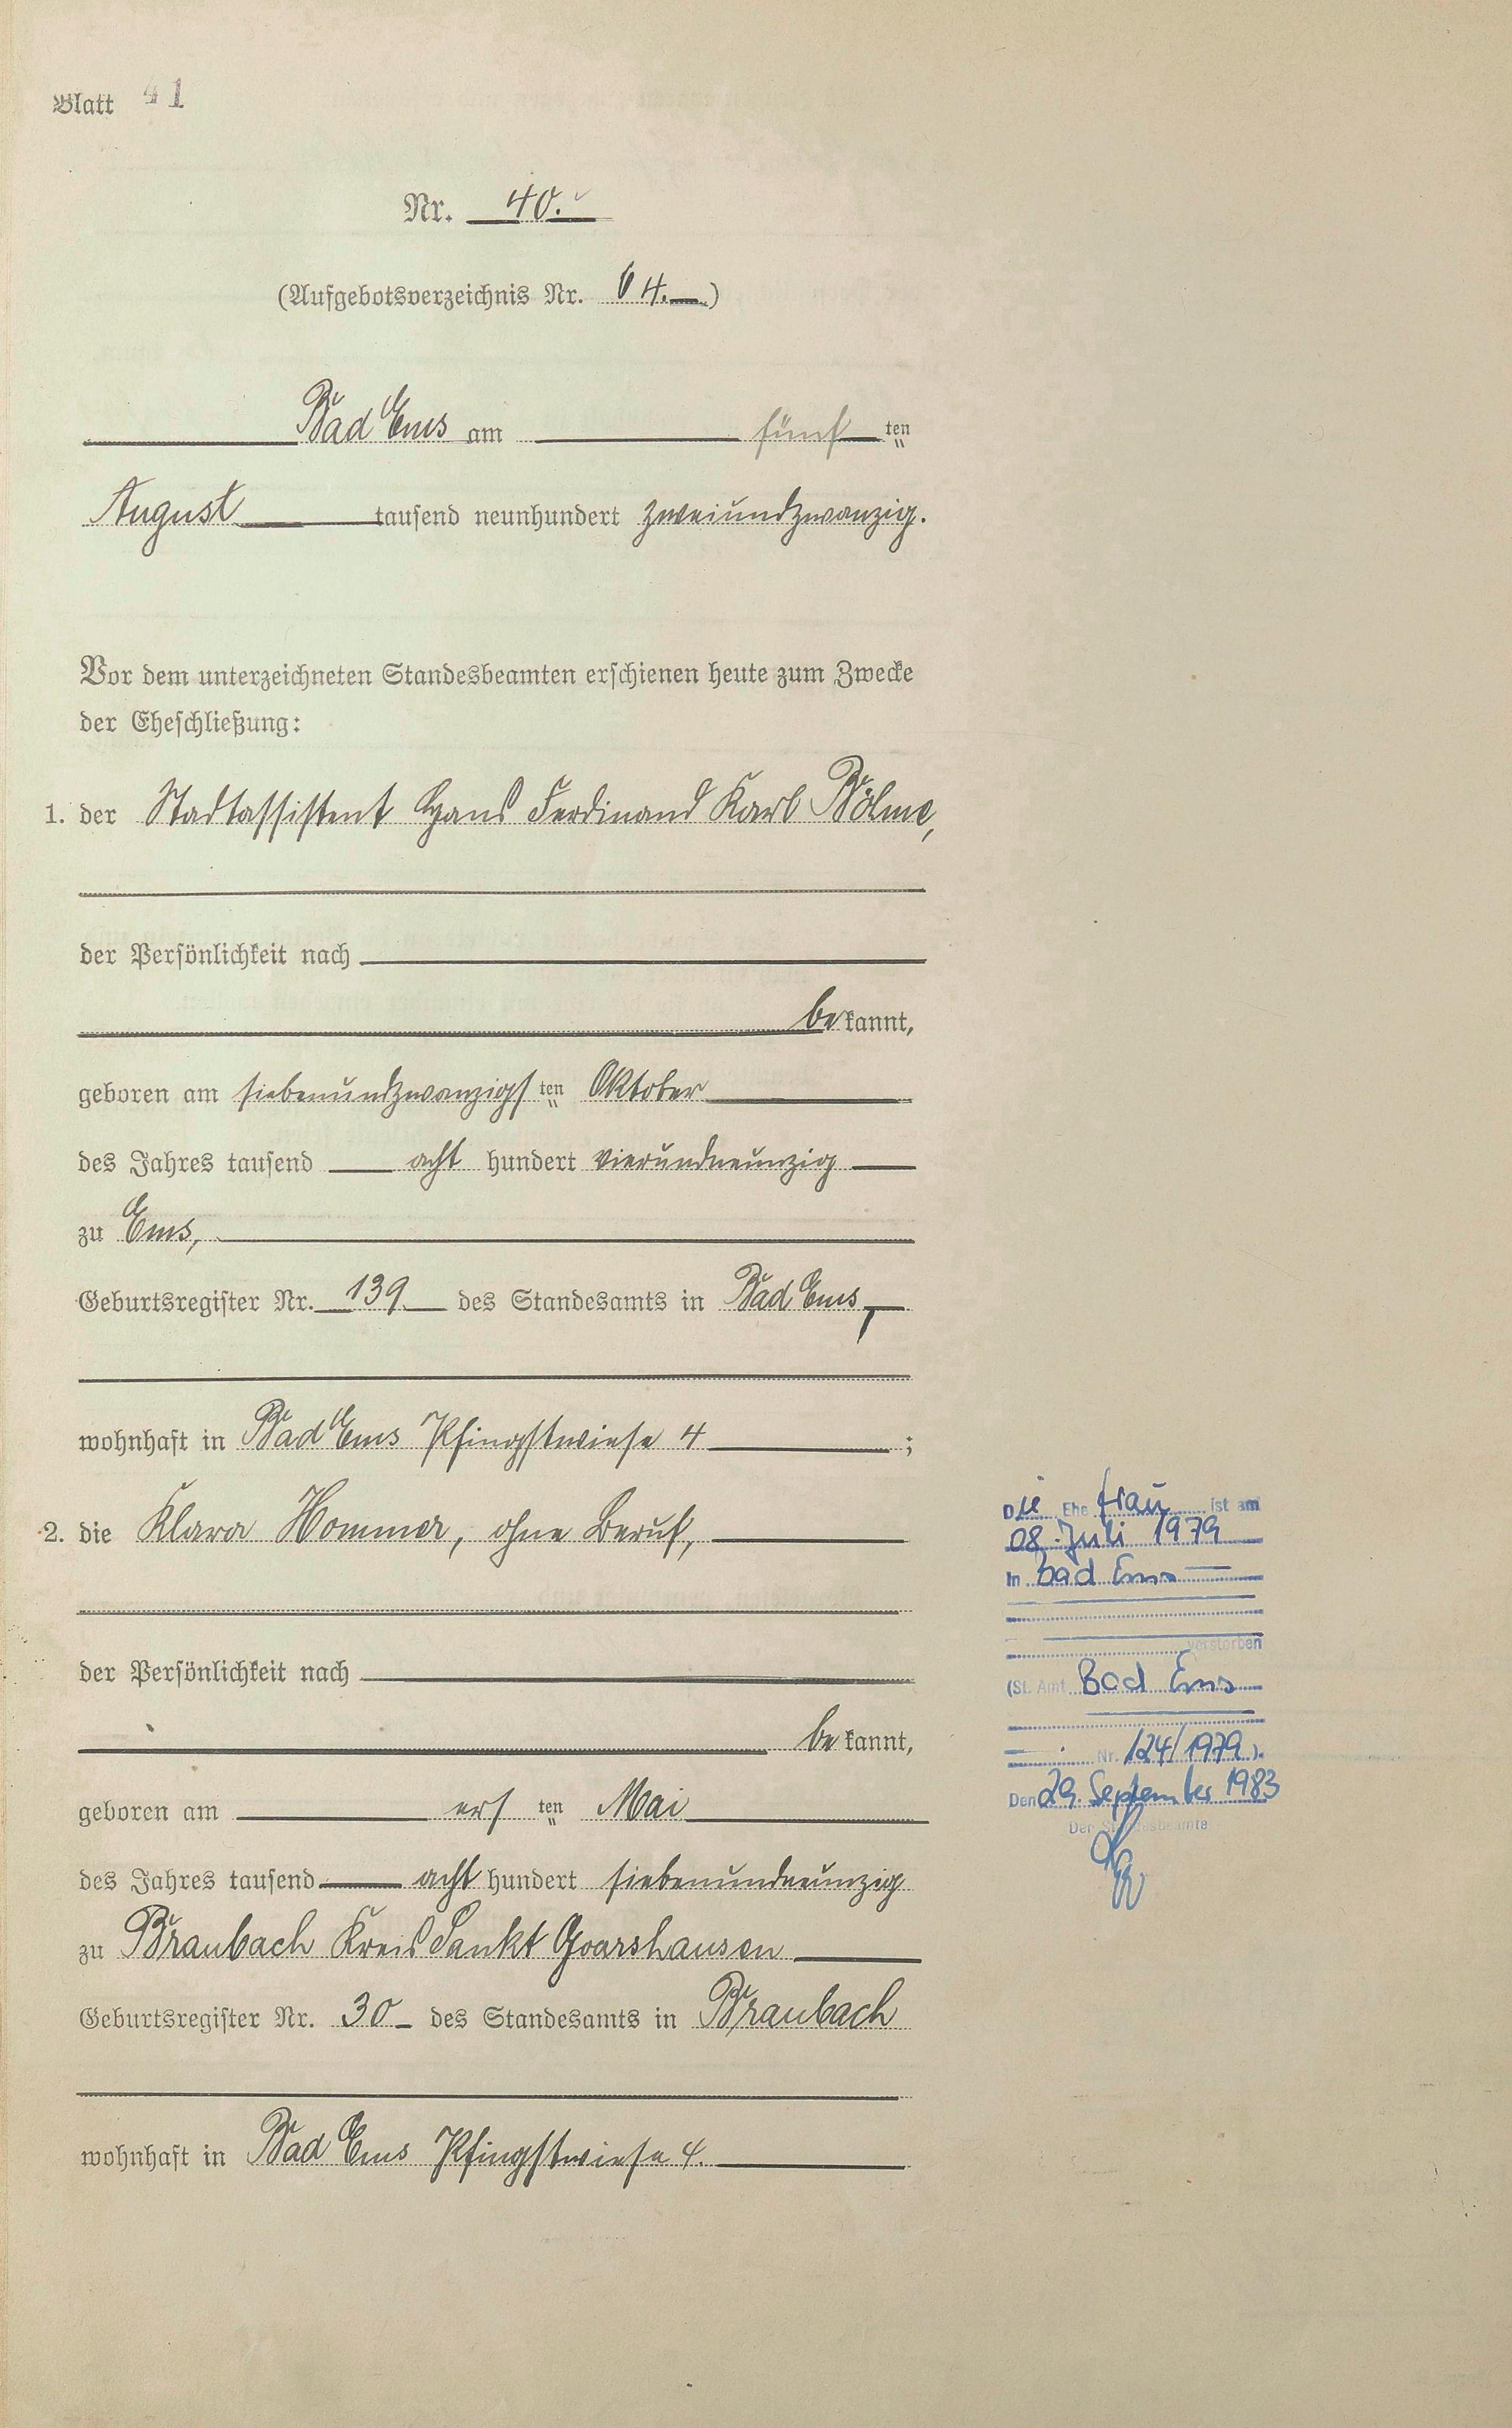 Blatt 41
Nr. 40.
(Aufgebotsverzeichnis Nr. 64.)
Bad Ems am fünften
August tausend neunhundert zweiundzwanzig.
Vor dem unterzeichneten Standesbeamten erschienen heute zum Zwecke
der Eheschließung:
1. der Stadtassistent Hans Ferdinand Karl
der Persönlichkeit nach
bekannt,
geboren am siebenundzwanzigsten Oktober
des Jahres tausend acht hundert vierundneunzig
zu Ems,
Geburtsregister Nr. 139 des Standesamts in Bad Ems,
wohnhaft in Bad Ems Pfingstwiese 4 ;
2. die Klara Hommer, ohne Beruf,
der Persönlichkeit nach
bekannt,
geboren am ersten Mai
des Jahres tausend acht hundert siebenundneunzig
zu Braubach Kreis Sankt Goarshausen
Geburtsregister Nr. 30 des Standesamts in Braubach
wohnhaft in Bad Ems Pfingstwiese 4.
Die Ehefrau ist am
08. Juli 1979
in Bad Ems
verstorben
(St. Amt Bad Ems
Nr. 124/1979).
Den 29. September 1983
Der Standesbeamte